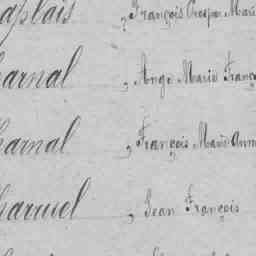 aplais , François Prosper Marie
harnal , Ange Marie Franço
harnal , François Marie Ann
harruel , Jean François